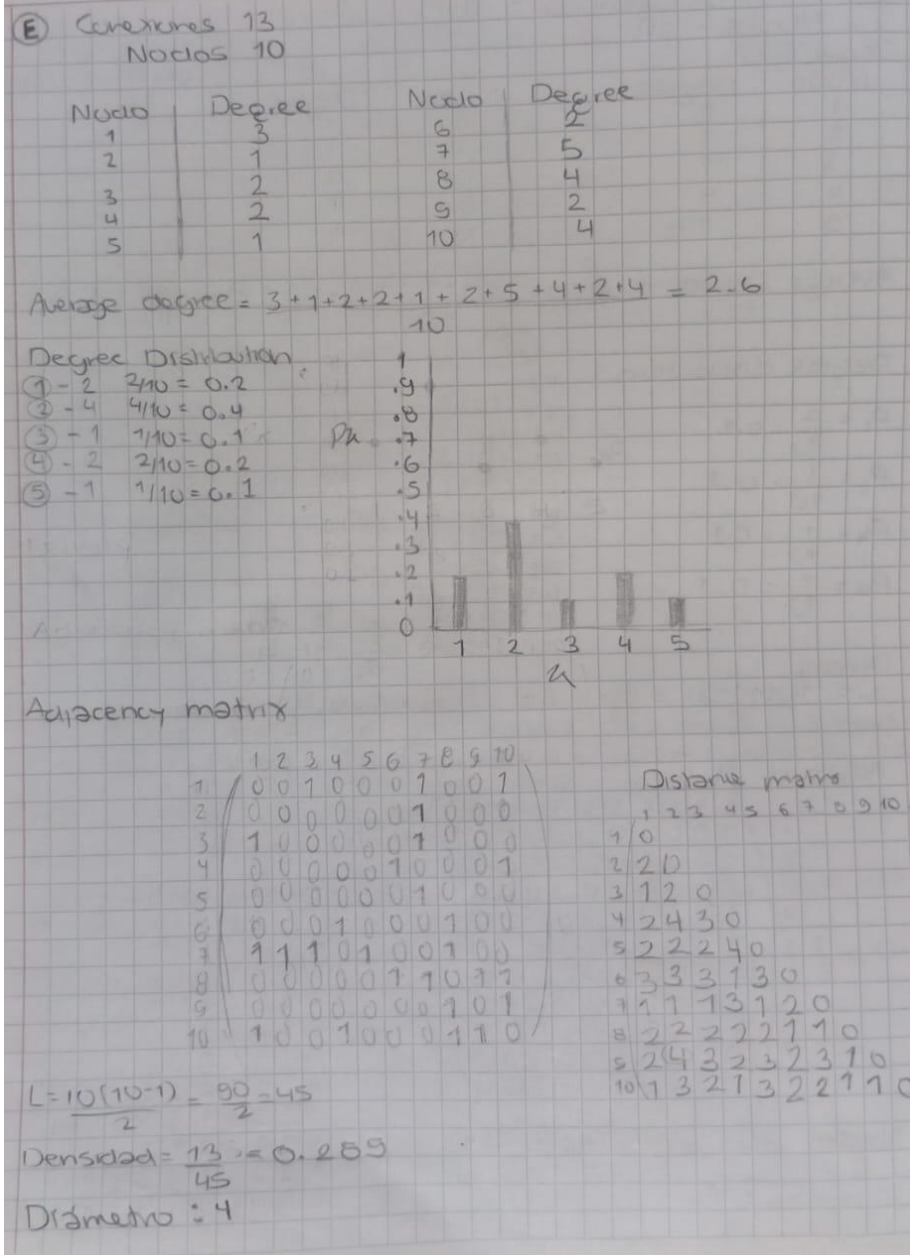 E Conexiones 13
Nodos 10
Nodo Degree Nodo Degree
1 3 6 2
2 1 7 5
3 2 8 4
4 2 9 2
5 1 10 4
Average degree = 3+1+2+2+1+2+5+4+2+4 = 2.6
10
Degree Distribution
1 - 2 2/10 = 0.2
2 - 4 4/10 = 0.4
3 - 1 1/10 = 0.1
4 - 2 2/10 = 0.2
5 - 1 1/10 = 0.1
1
.9
.8
Pk .7
.6
.5
.4
.3
.2
.1
0
1 2 3 4 5
k
Adjacency matrix
1 2 3 4 5 6 7 8 9 10
1 0 0 1 0 0 0 1 0 0 1
2 0 0 0 0 0 0 1 0 0 0
3 1 0 0 0 0 0 1 0 0 0
4 0 0 0 0 0 1 0 0 0 1
5 0 0 0 0 0 0 1 0 0 0
6 0 0 0 1 0 0 0 1 0 0
7 1 1 1 0 1 0 0 1 0 0
8 0 0 0 0 0 1 1 0 1 1
9 0 0 0 0 0 0 0 1 0 1
10 1 0 0 1 0 0 0 1 1 0
Distance matrix
1 2 3 4 5 6 7 8 9 10
1 0
2 2 0
3 1 2 0
4 2 4 3 0
5 2 2 2 4 0
6 3 3 3 1 3 0
7 1 1 1 3 1 2 0
8 2 2 2 2 2 1 1 0
9 2 4 3 2 3 2 3 1 0
10 1 3 2 1 3 2 2 1 1 0
L = 10(10-1) = 90 = 45
2 2
Densidad = 13 = 0.289
45
Diámetro : 4